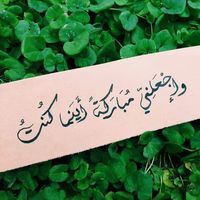 وإجعلني مُبَاركَةً أينَما كُنتُ